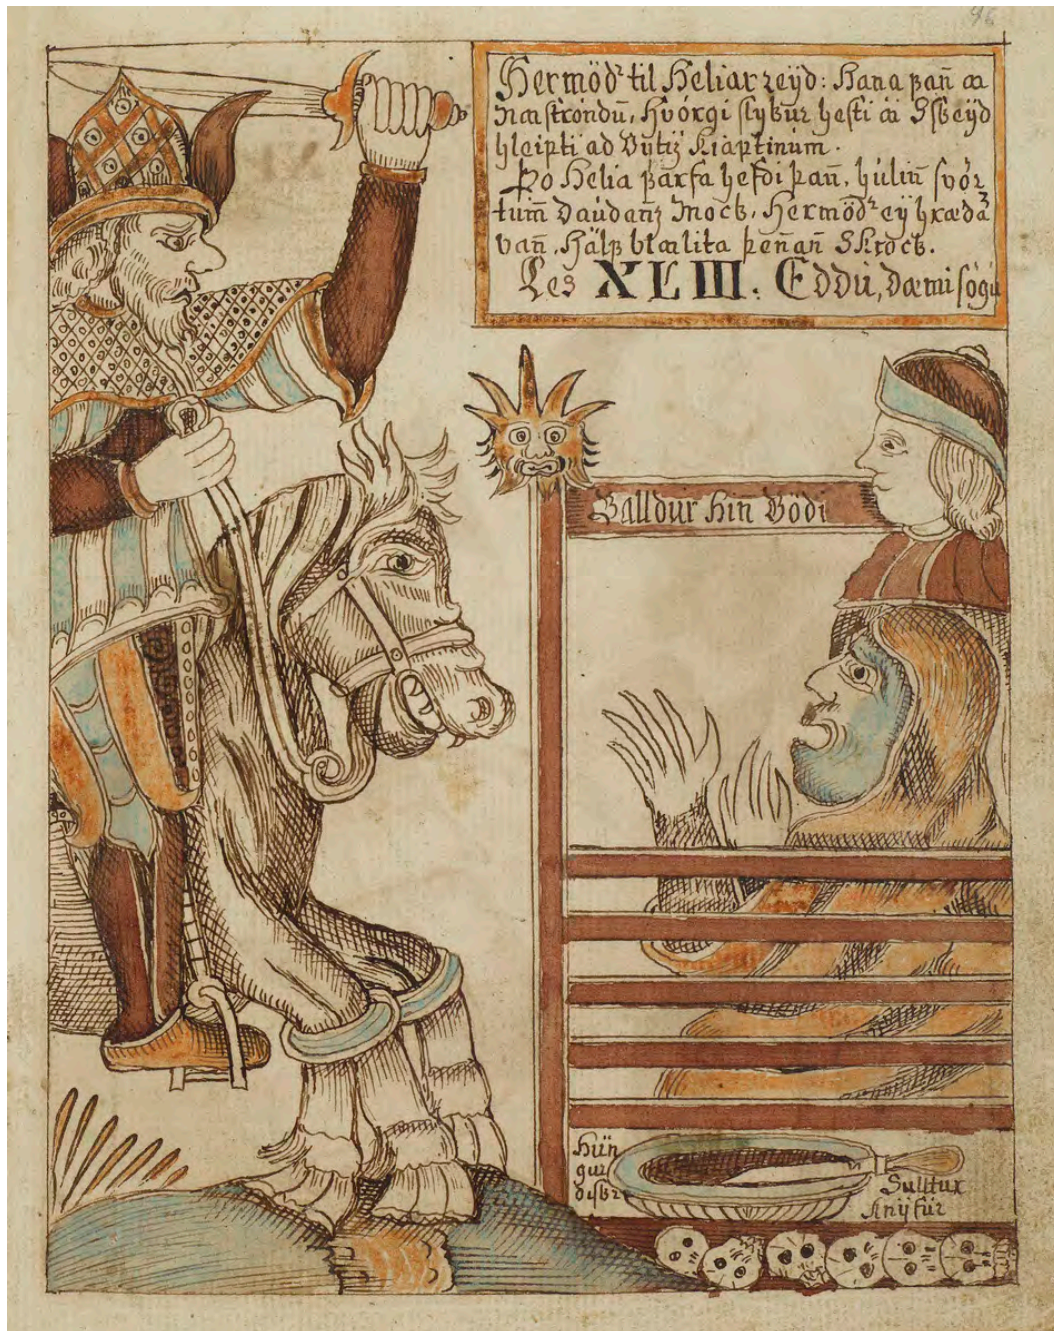 96
Hermödr til Heliar reÿd: Hana þan̄ aa
Naströndun̄, Hvörgi slÿþur hesti ä
hleipti ad Vÿtis kiaptinum.
Þo Helia þarfa hefdi þan̄, húlin̄ svör
tum̄ Daúdan̄s Mock, Hermödr eÿ hrædā
van̄, Hälf blalita þen̄an̄ Skrock.
Les XLIII. Eddú, Dæmisögú
Balldur hin Gödi
Hún
gur
diskr
Sulltur
knÿfúr